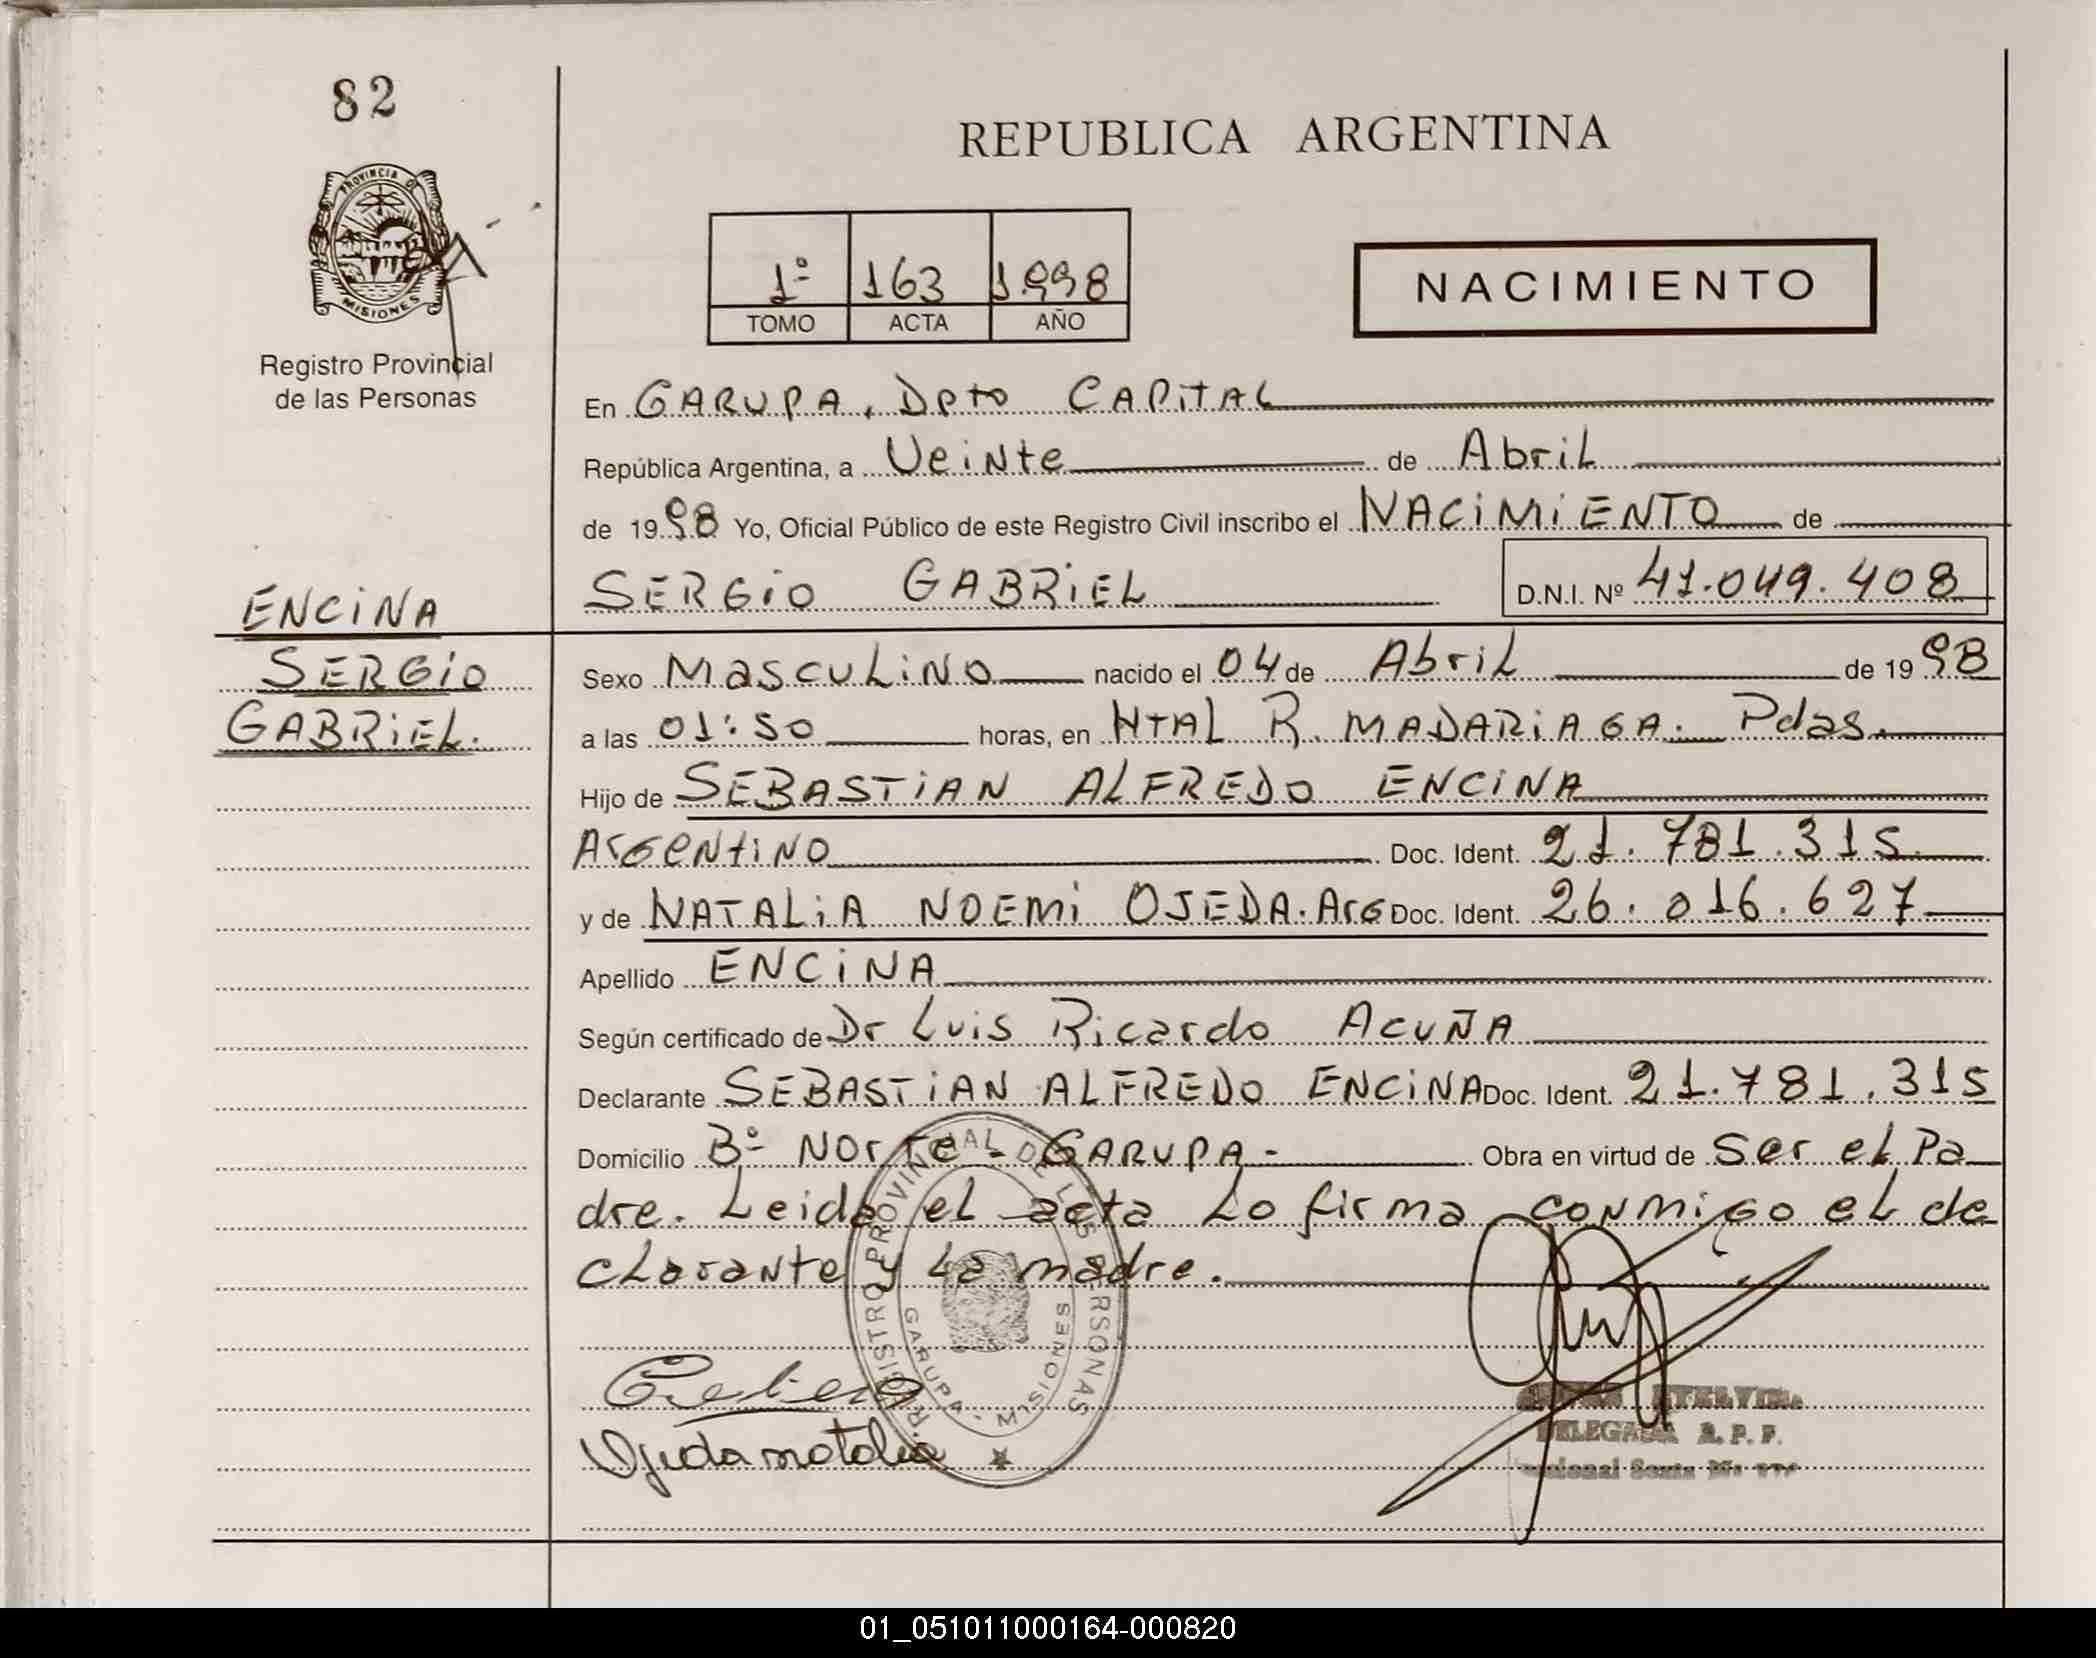 82
REPUBLICA ARGENTINA
PROVINCIA DE
MISIONES
Registro Provincial
de las Personas
1º 163 1998
TOMO ACTA AÑO
NACIMIENTO
En GARUPA, Dpto CAPITAL
República Argentina, a Veinte de Abril
de 1998 Yo, Oficial Público de este Registro Civil inscribo el NACIMIENTO de
SERGIO GABRIEL D.N.I. Nº 41.049.408
ENCINA
SERGIO
GABRIEL.
Sexo Masculino nacido el 04 de Abril de 1998
a las 01:50 horas, en HTAL R. MADARIAGA. Pdas.
Hijo de SEBASTIAN ALFREDO ENCINA
Argentino Doc. Ident. 21.781.315
y de NATALIA NOEMI OJEDA. Arg Doc. Ident. 26.016.627
Apellido ENCINA
Según certificado de Dr Luis Ricardo ACUÑA
Declarante SEBASTIAN ALFREDO ENCINA Doc. Ident. 21.781.315
Domicilio Bº NOrte - GARUPA - Obra en virtud de Ser el Pa
dre. Leida el acta Lo firma conmigo el de
clarante y La madre.
REGISTRO PROVINCIAL DE LAS PERSONAS
GARUPA - MISIONES
Ojeda natalia
DELEGADA R. P. P.
01_051011000164-000820